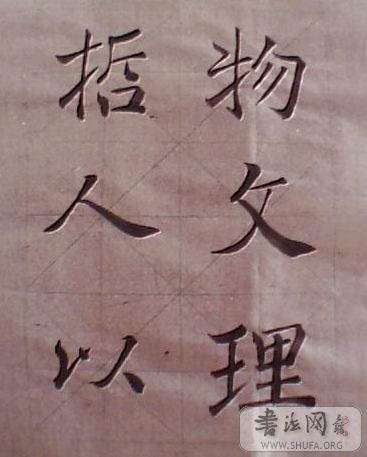 物文理
哲人以
書法网
WWW.SHUFA.ORG